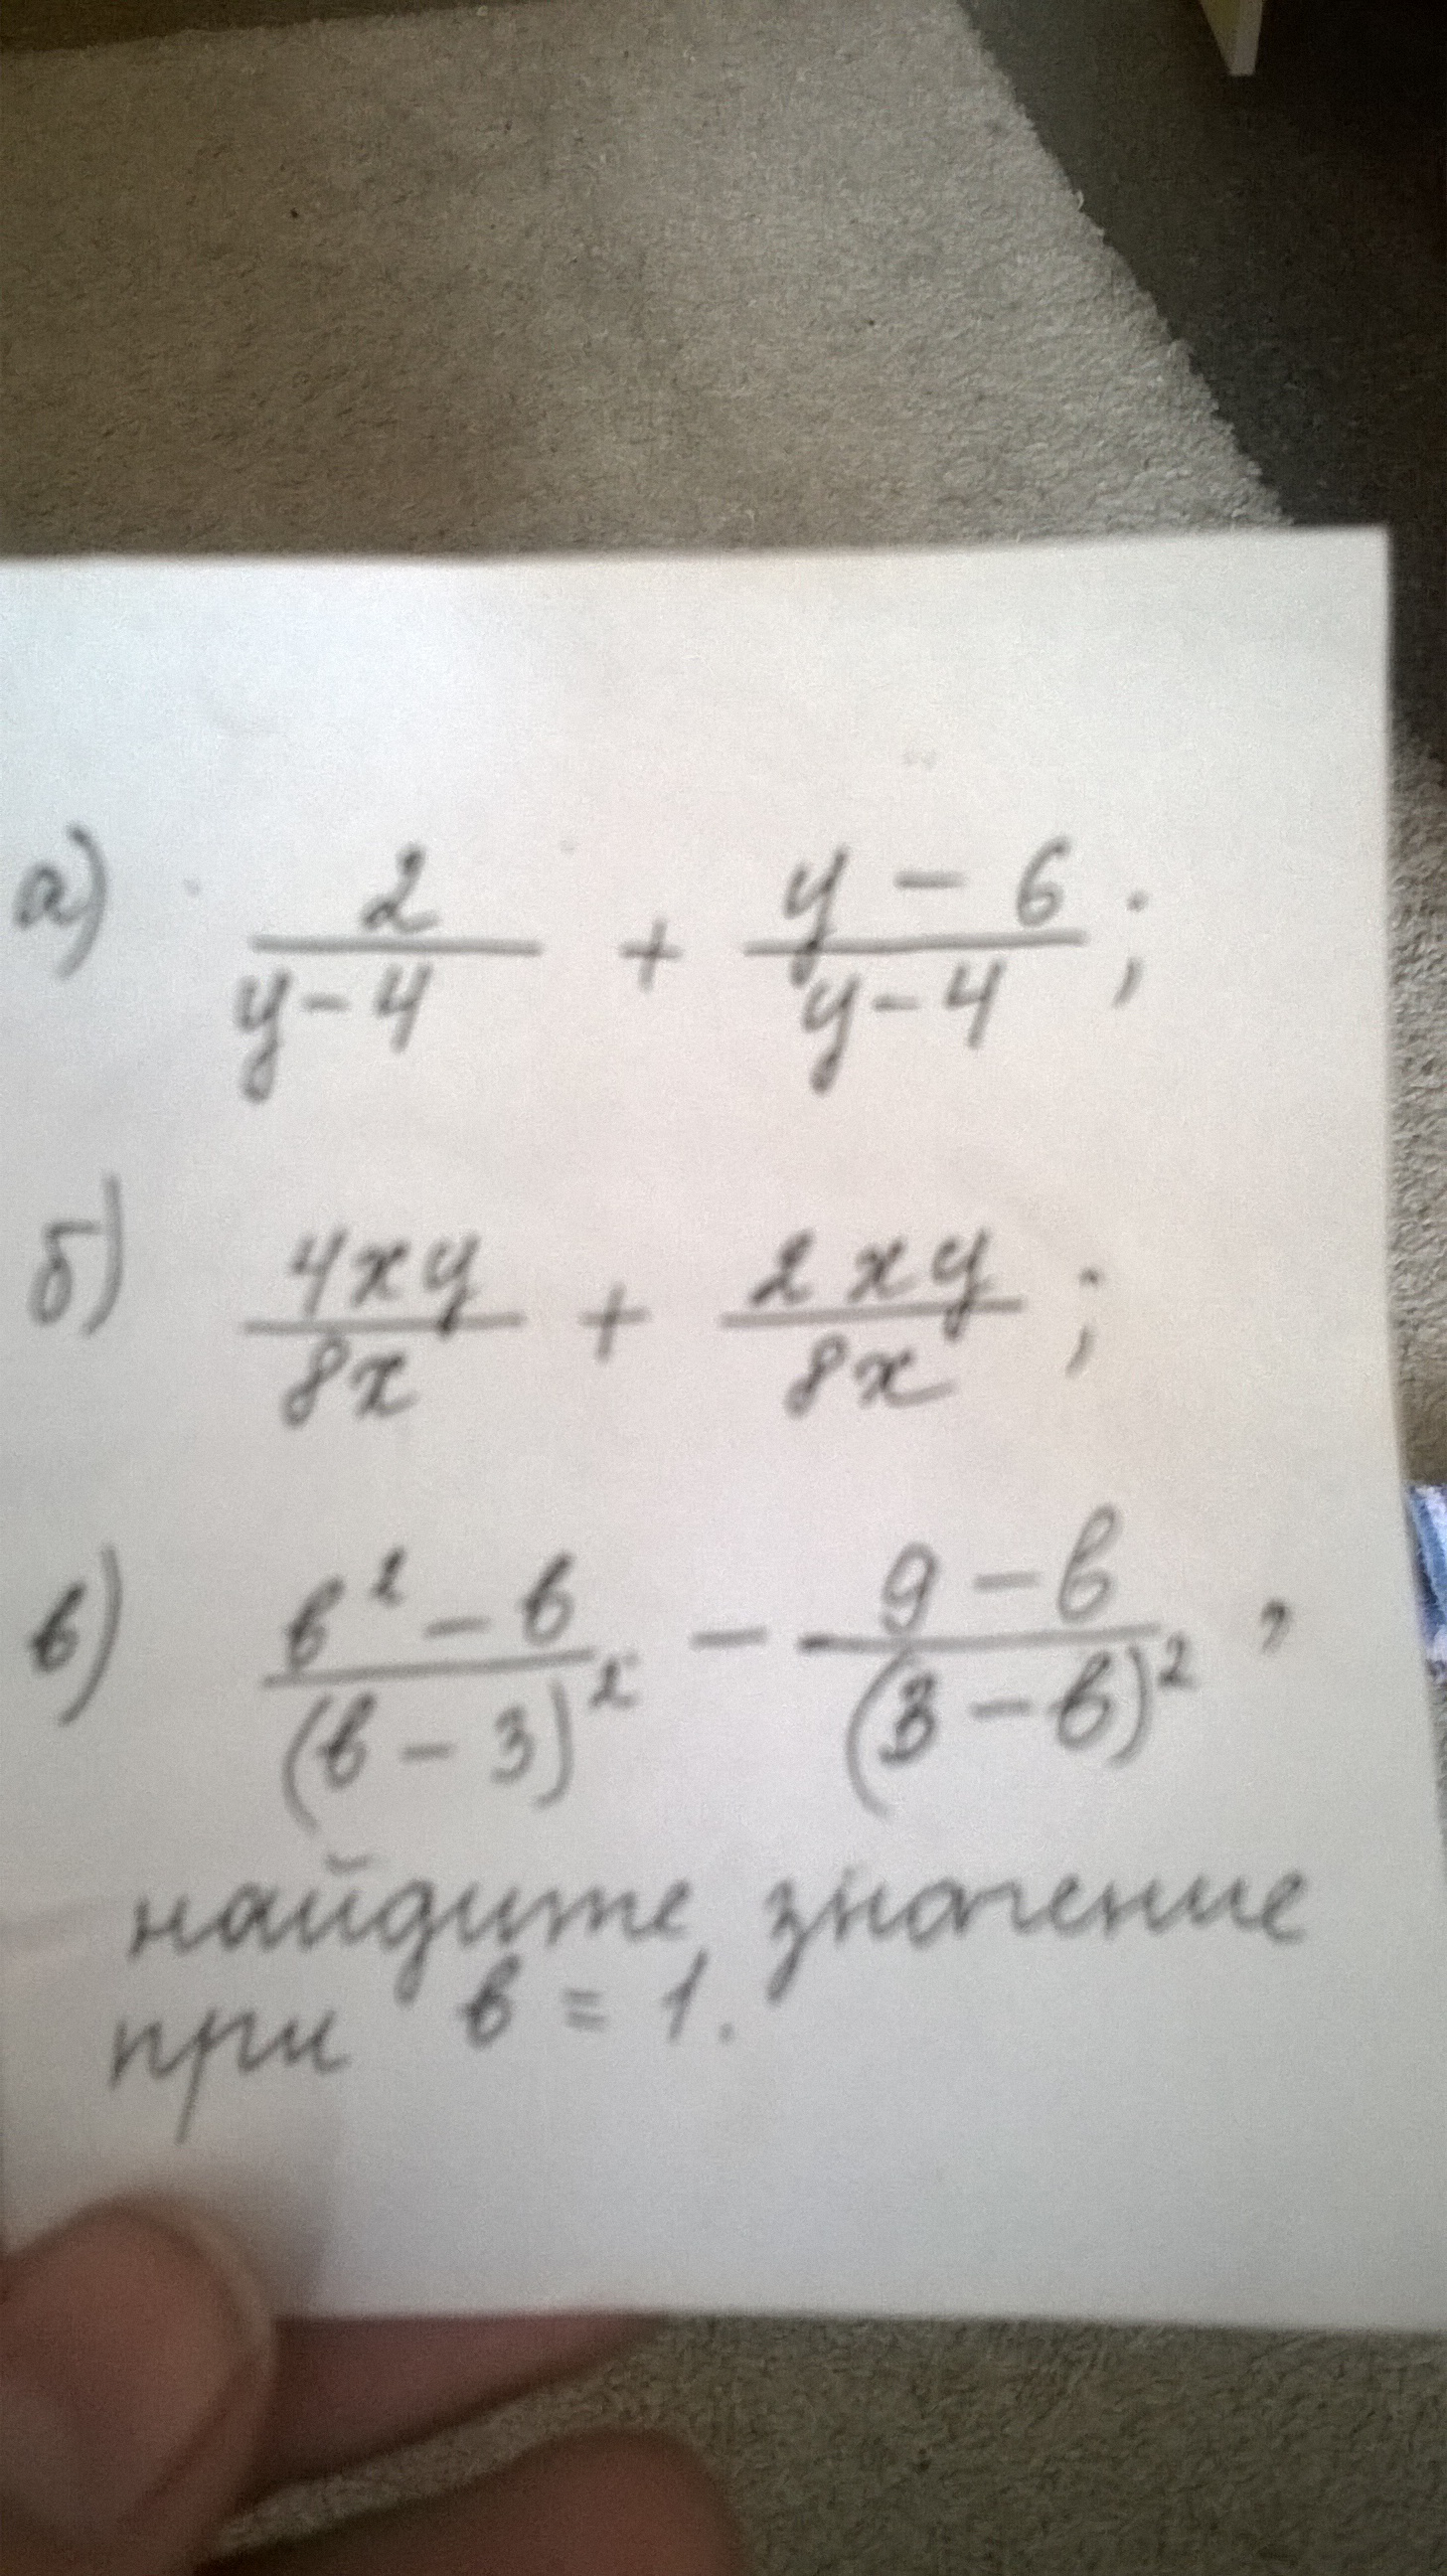 а) 2/(y-4) + (y-6)/(y-4);
б) 4xy/8x + 2xy/8x;
в) (b²-b)/(b-3)² - (9-b)/(3-b)²,
найдите значение
при b = 1.